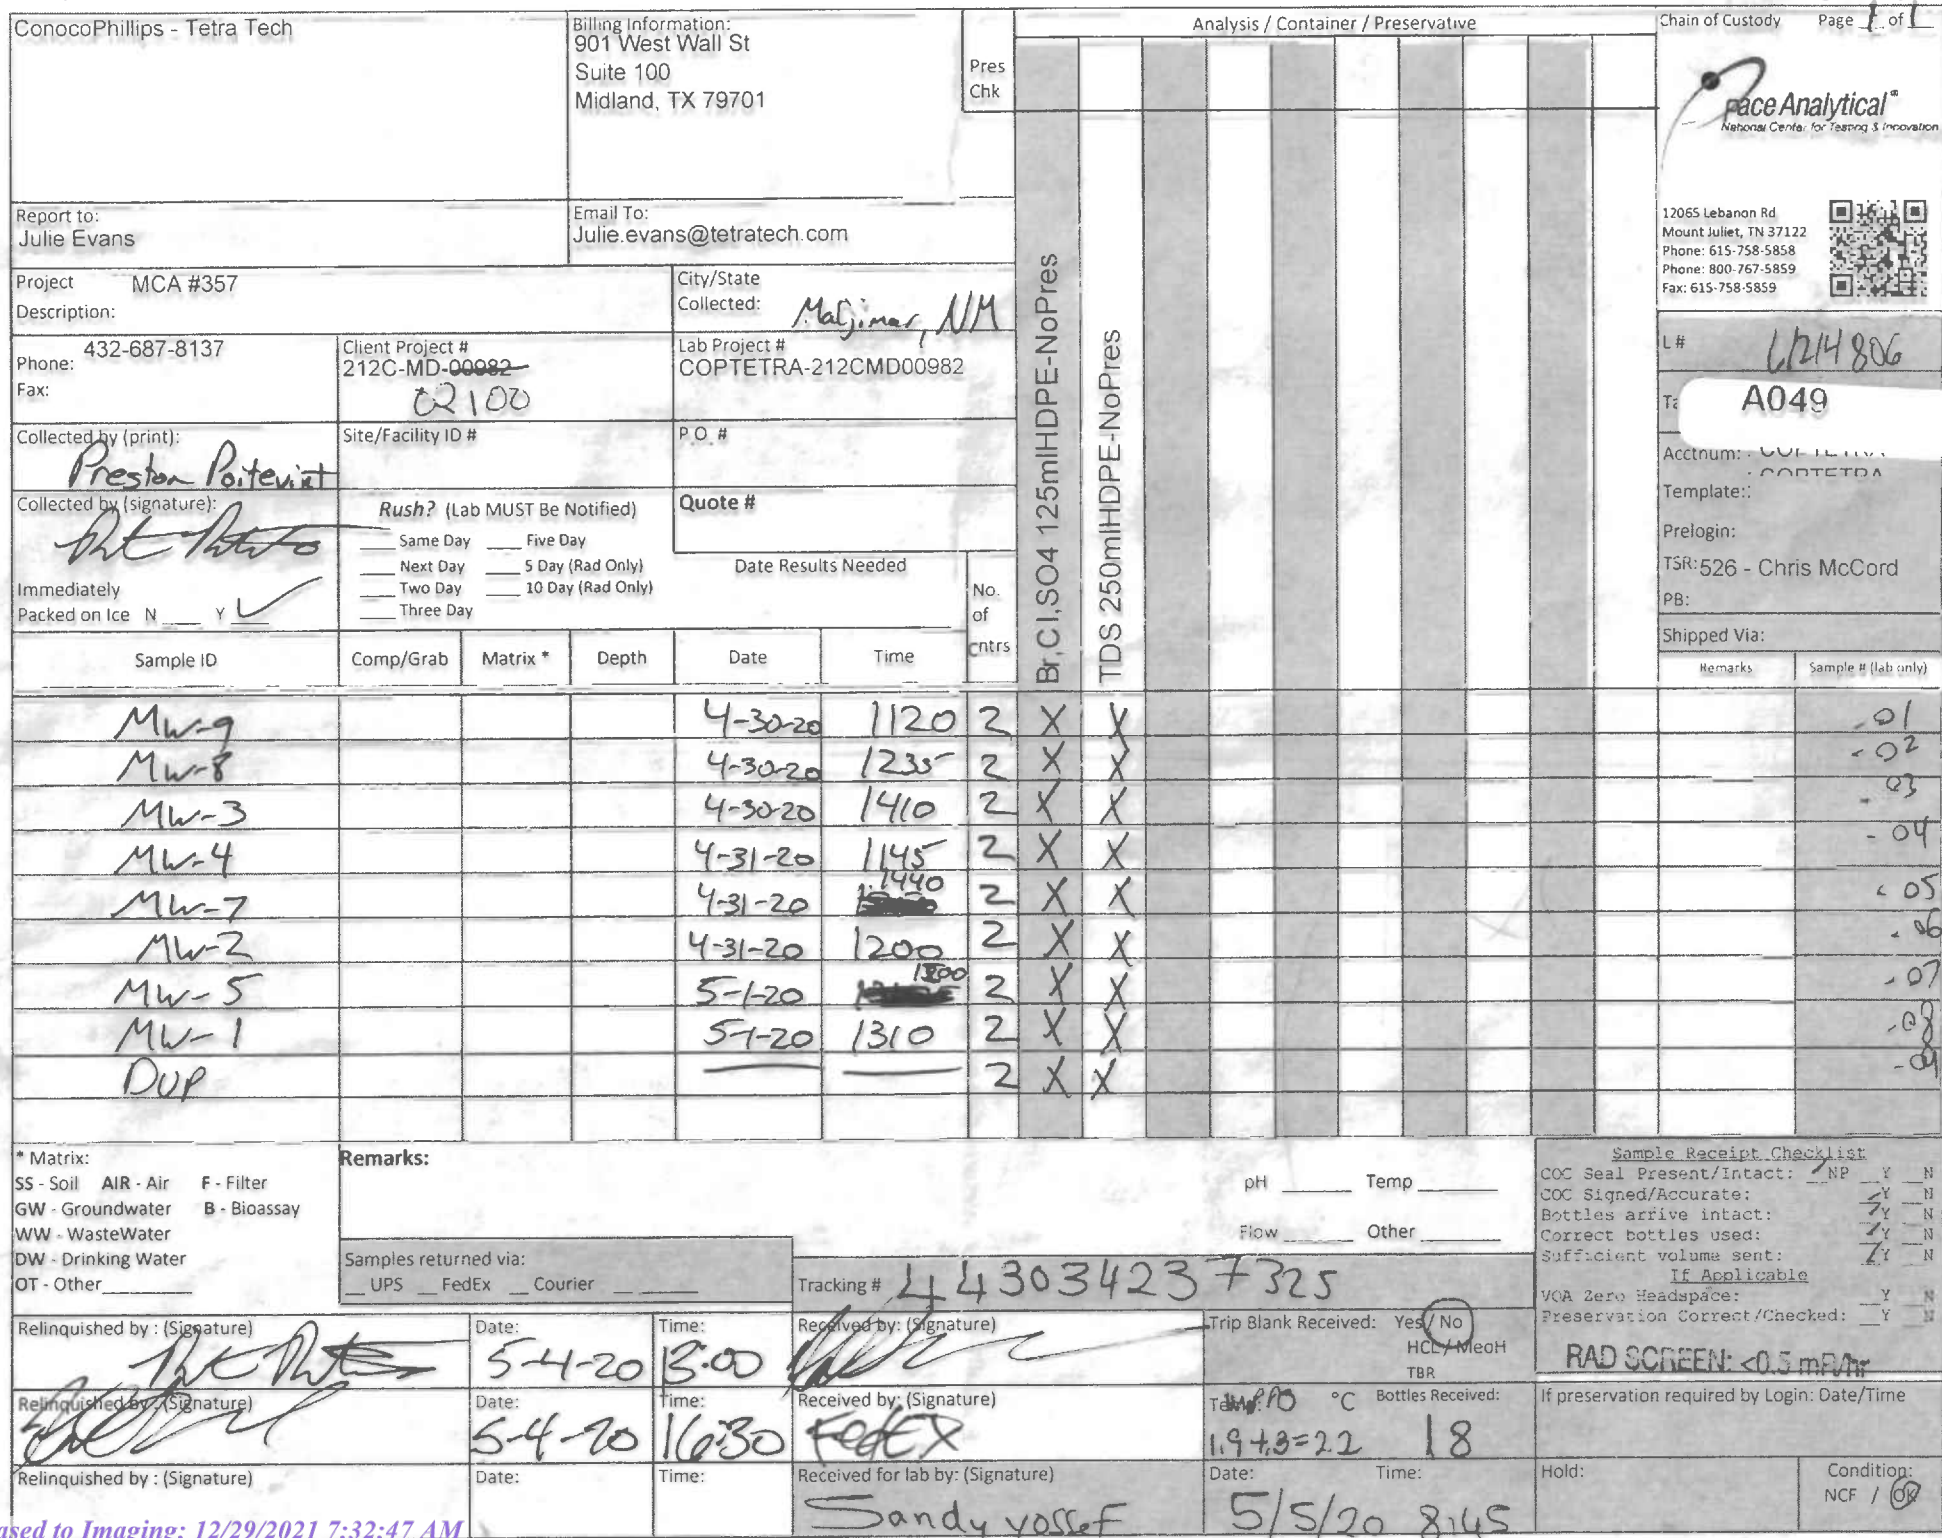 ConocoPhillips - Tetra Tech
Billing Information:
901 West Wall St
Suite 100
Midland, TX 79701
Pres
Chk
Analysis / Container / Preservative
Chain of Custody Page 1 of 1
Pace Analytical®
National Center for Testing & Innovation
Report to:
Julie Evans
Email To:
Julie.evans@tetratech.com
12065 Lebanon Rd
Mount Juliet, TN 37122
Phone: 615-758-5858
Phone: 800-767-5859
Fax: 615-758-5859
Project MCA #357
Description:
City/State
Collected: Maljimar, NM
Phone: 432-687-8137
Fax:
Client Project #
212C-MD-00982
02100
Lab Project #
COPTETRA-212CMD00982
L # L1214806
A049
Collected by (print):
Preston Poitevint
Site/Facility ID #
P.O. #
Acctnum:
COPTETRA
Template:
Prelogin:
TSR: 526 - Chris McCord
PB:
Shipped Via:
Collected by (signature):
Rush? (Lab MUST Be Notified)
Same Day Five Day
Next Day 5 Day (Rad Only)
Two Day 10 Day (Rad Only)
Three Day
Quote #
Date Results Needed
Immediately
Packed on Ice N Y
No.
of
cntrs
Br,Cl,SO4 125mlHDPE-NoPres
TDS 250mlHDPE-NoPres
Sample ID Comp/Grab Matrix * Depth Date Time Remarks Sample # (lab only)
MW-9 4-30-20 1120 2 X X -01
MW-8 4-30-20 1235 2 X X -02
MW-3 4-30-20 1410 2 X X -03
MW-4 4-31-20 1145 2 X X -04
MW-7 4-31-20 1440 2 X X -05
MW-2 4-31-20 1200 2 X X -06
MW-5 5-1-20 2 X X -07
MW-1 5-1-20 1310 2 X X -08
DUP 2 X X -09
* Matrix:
SS - Soil AIR - Air F - Filter
GW - Groundwater B - Bioassay
WW - WasteWater
DW - Drinking Water
OT - Other
Remarks:
pH Temp
Flow Other
Samples returned via:
UPS FedEx Courier
Tracking # 443034237325
Sample Receipt Checklist
COC Seal Present/Intact: NP Y N
COC Signed/Accurate: Y N
Bottles arrive intact: Y N
Correct bottles used: Y N
Sufficient volume sent: Y N
If Applicable
VOA Zero Headspace: Y N
Preservation Correct/Checked: Y N
RAD SCREEN: <0.5 mR/hr
Relinquished by : (Signature)
Date: 5-4-20
Time:
Received by: (Signature)
Trip Blank Received: Yes / No
HCL / MeoH
TBR
Relinquished by : (Signature)
Date: 5-4-20
Time: 16:30
Received by: (Signature)
FedEX
Temp: °C
1.9+.3=2.2
Bottles Received:
18
If preservation required by Login: Date/Time
Relinquished by : (Signature)
Date:
Time:
Received for lab by: (Signature)
Sandy yossef
Date: 5/5/20
Time: 8:45
Hold:
Condition:
NCF / OK
ased to Imaging: 12/29/2021 7:32:47 AM